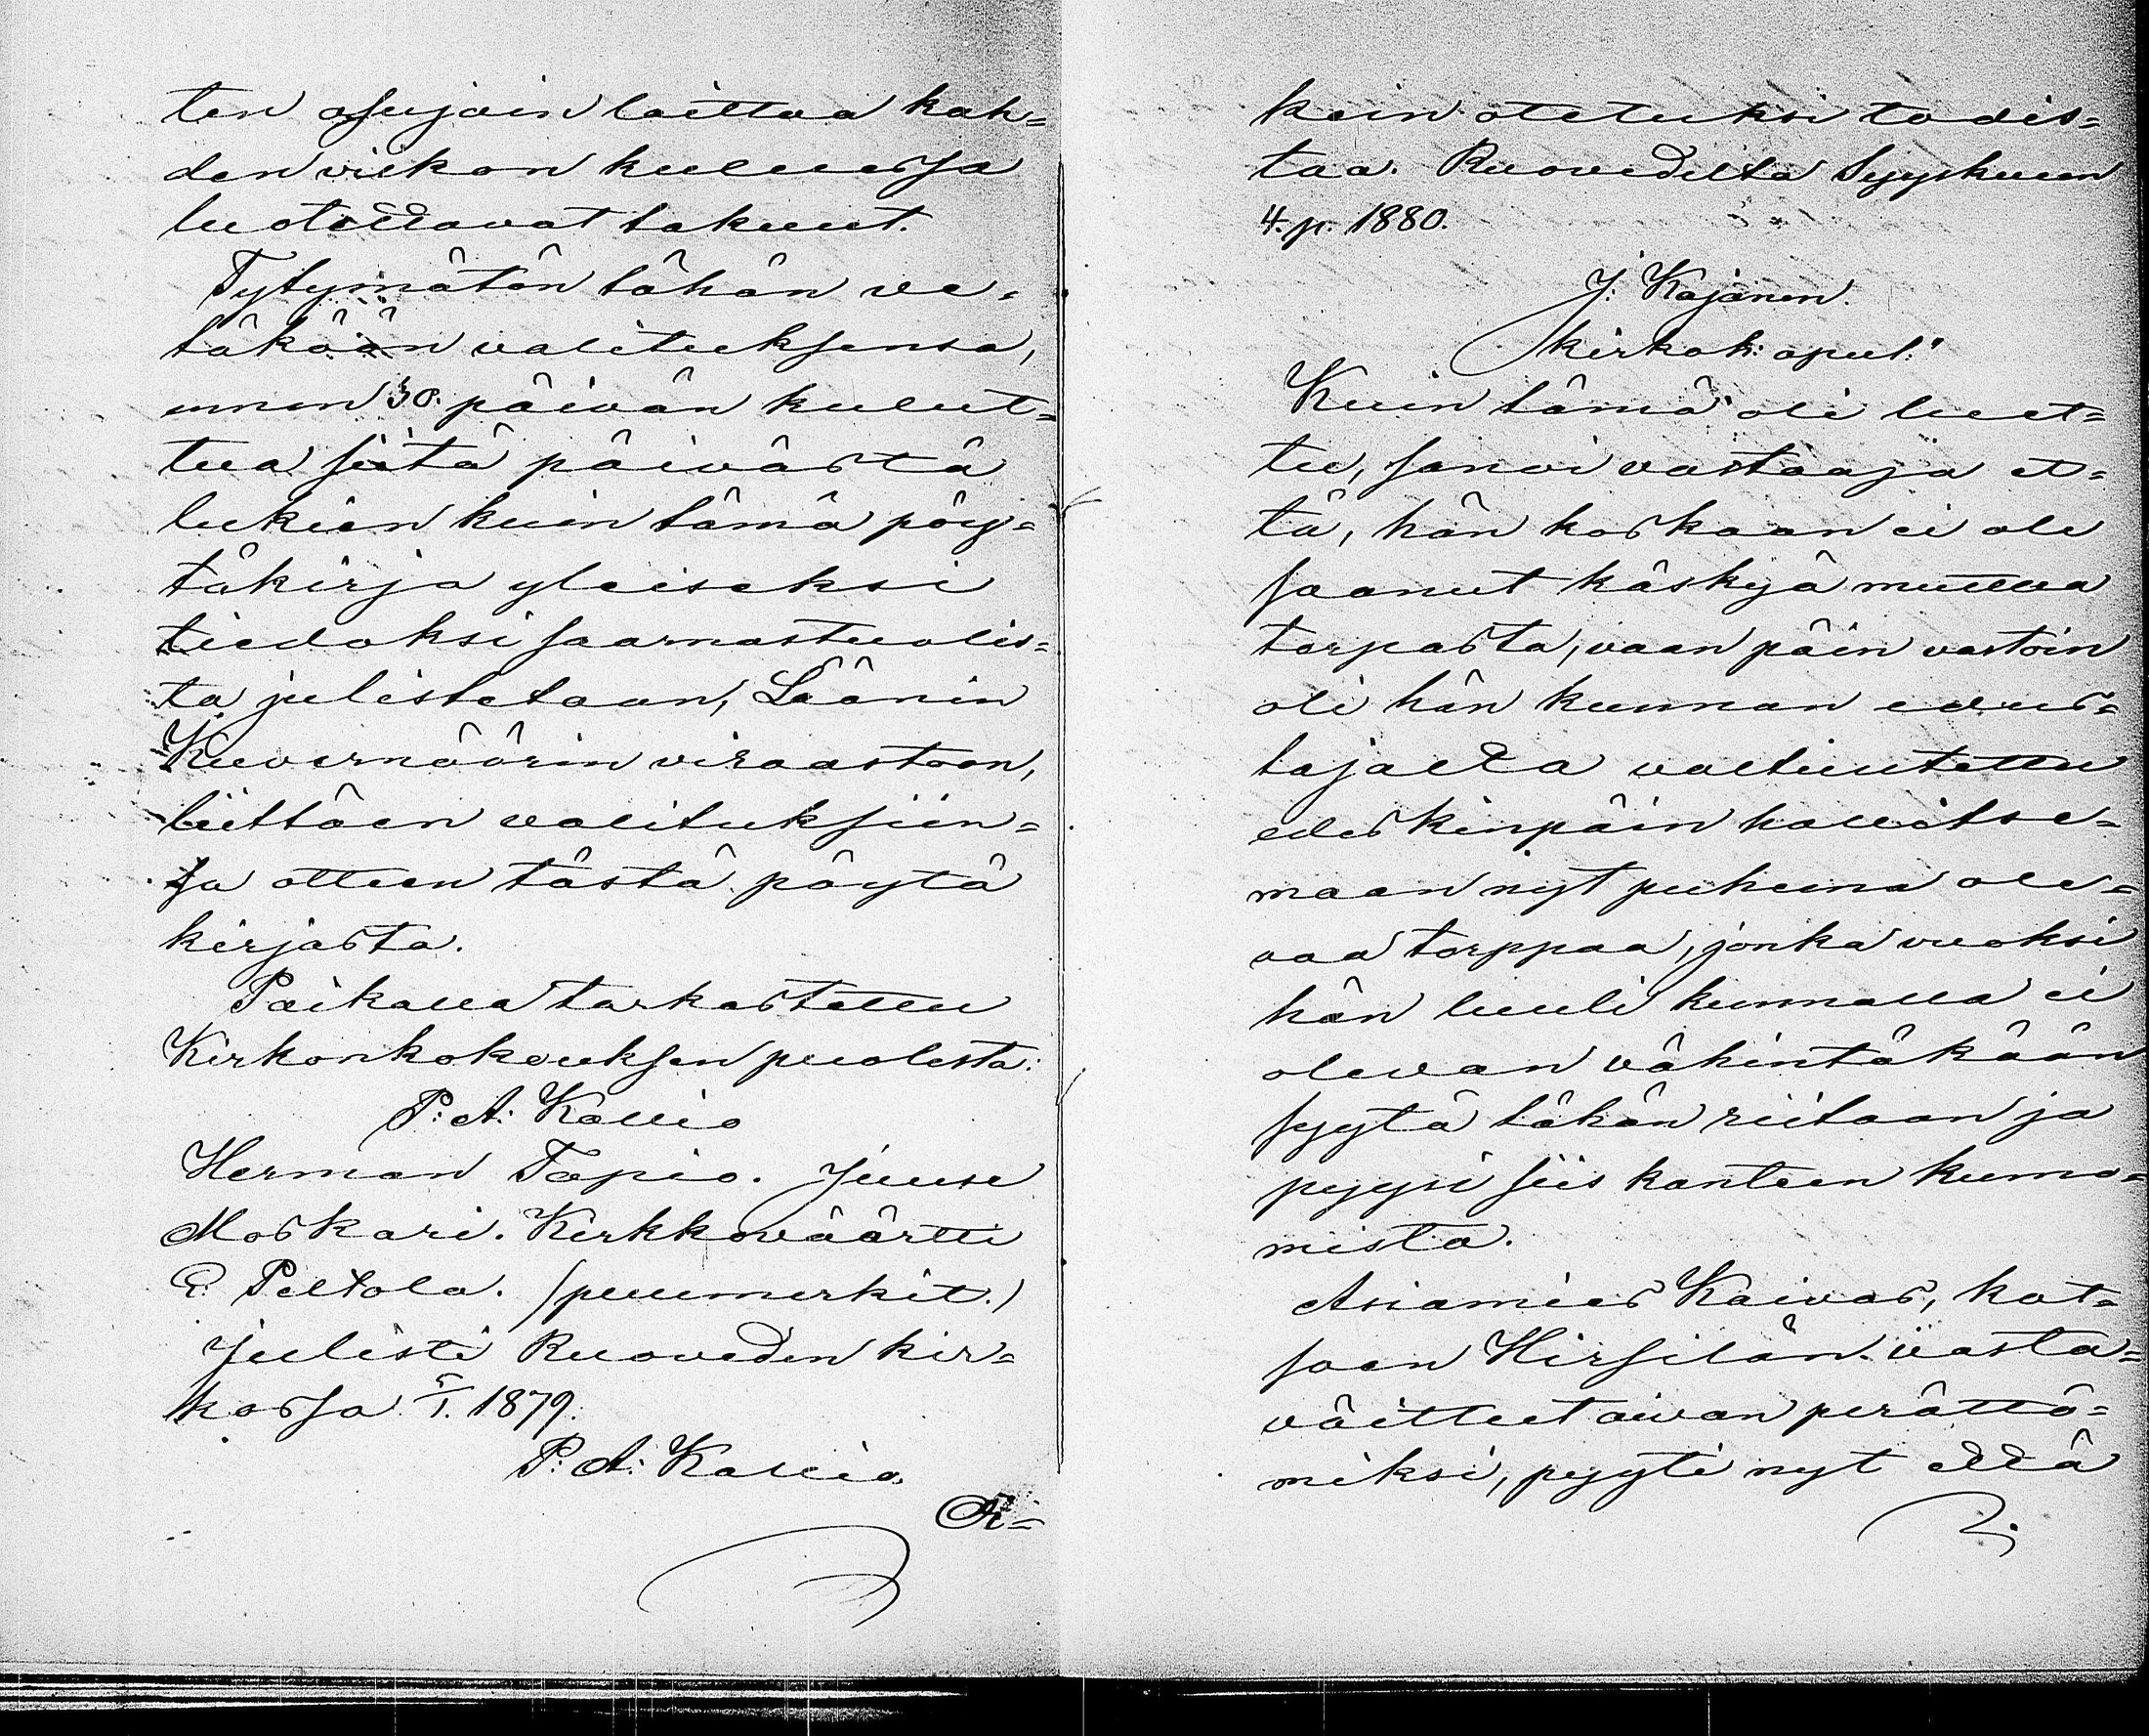 ten osujain laittaa kah=
den viikon kuluessa
luotettavat takuut.
Tytymätön tähän ve=
täköön valituksensa,
ennen 30. päivän kulut=
tua siitä päivästä
lukien kuin tämä pöy=
täkirja yleiseksi
tiedoksi saarnastuolis=
ta julistetaan, Läänin
Kuvernöörin virastoon,
liittäen valituksiin=
sa otteen tästä pöytä
kirjasta.
Paikalla tarkastettu
Kirkonkokouksen puolesta:
P: A: Kallio
Herman Tapio. Juuse
Moskari. Kirkkoväärtti
E: Peltola. (puumerkit.)
Julisti Ruoveden kir=
kossa 1879.
P: A: Kallio.
Oi=
kein otetuksi todis=
taa. Ruovedeltä Syyskuun
4. p. 1880.
J: Kajanen.
kirkoh: apul:"
Kuin tämä oli luet=
tu, sanoi vastaaja et=
tä, hän koskaan ei ole
saanut käskyä muuttaa
torpasta, vaan päin vastoin
oli hän kunnan edus=
tajalta valtuutettu
edeskinpäin hallitse=
maan nyt puheena ole=
vaa torppaa, jonka vuoksi
hän luuli kunnalla ei
olevan vähintäkään
syytä tähän riitaan ja
pyysi siis kanteen kumo=
mista.
Asiamies Kaivas, kat=
soen Hirsilän vasta=
väitteet aivan perättö=
miksi, pyyti nyt että